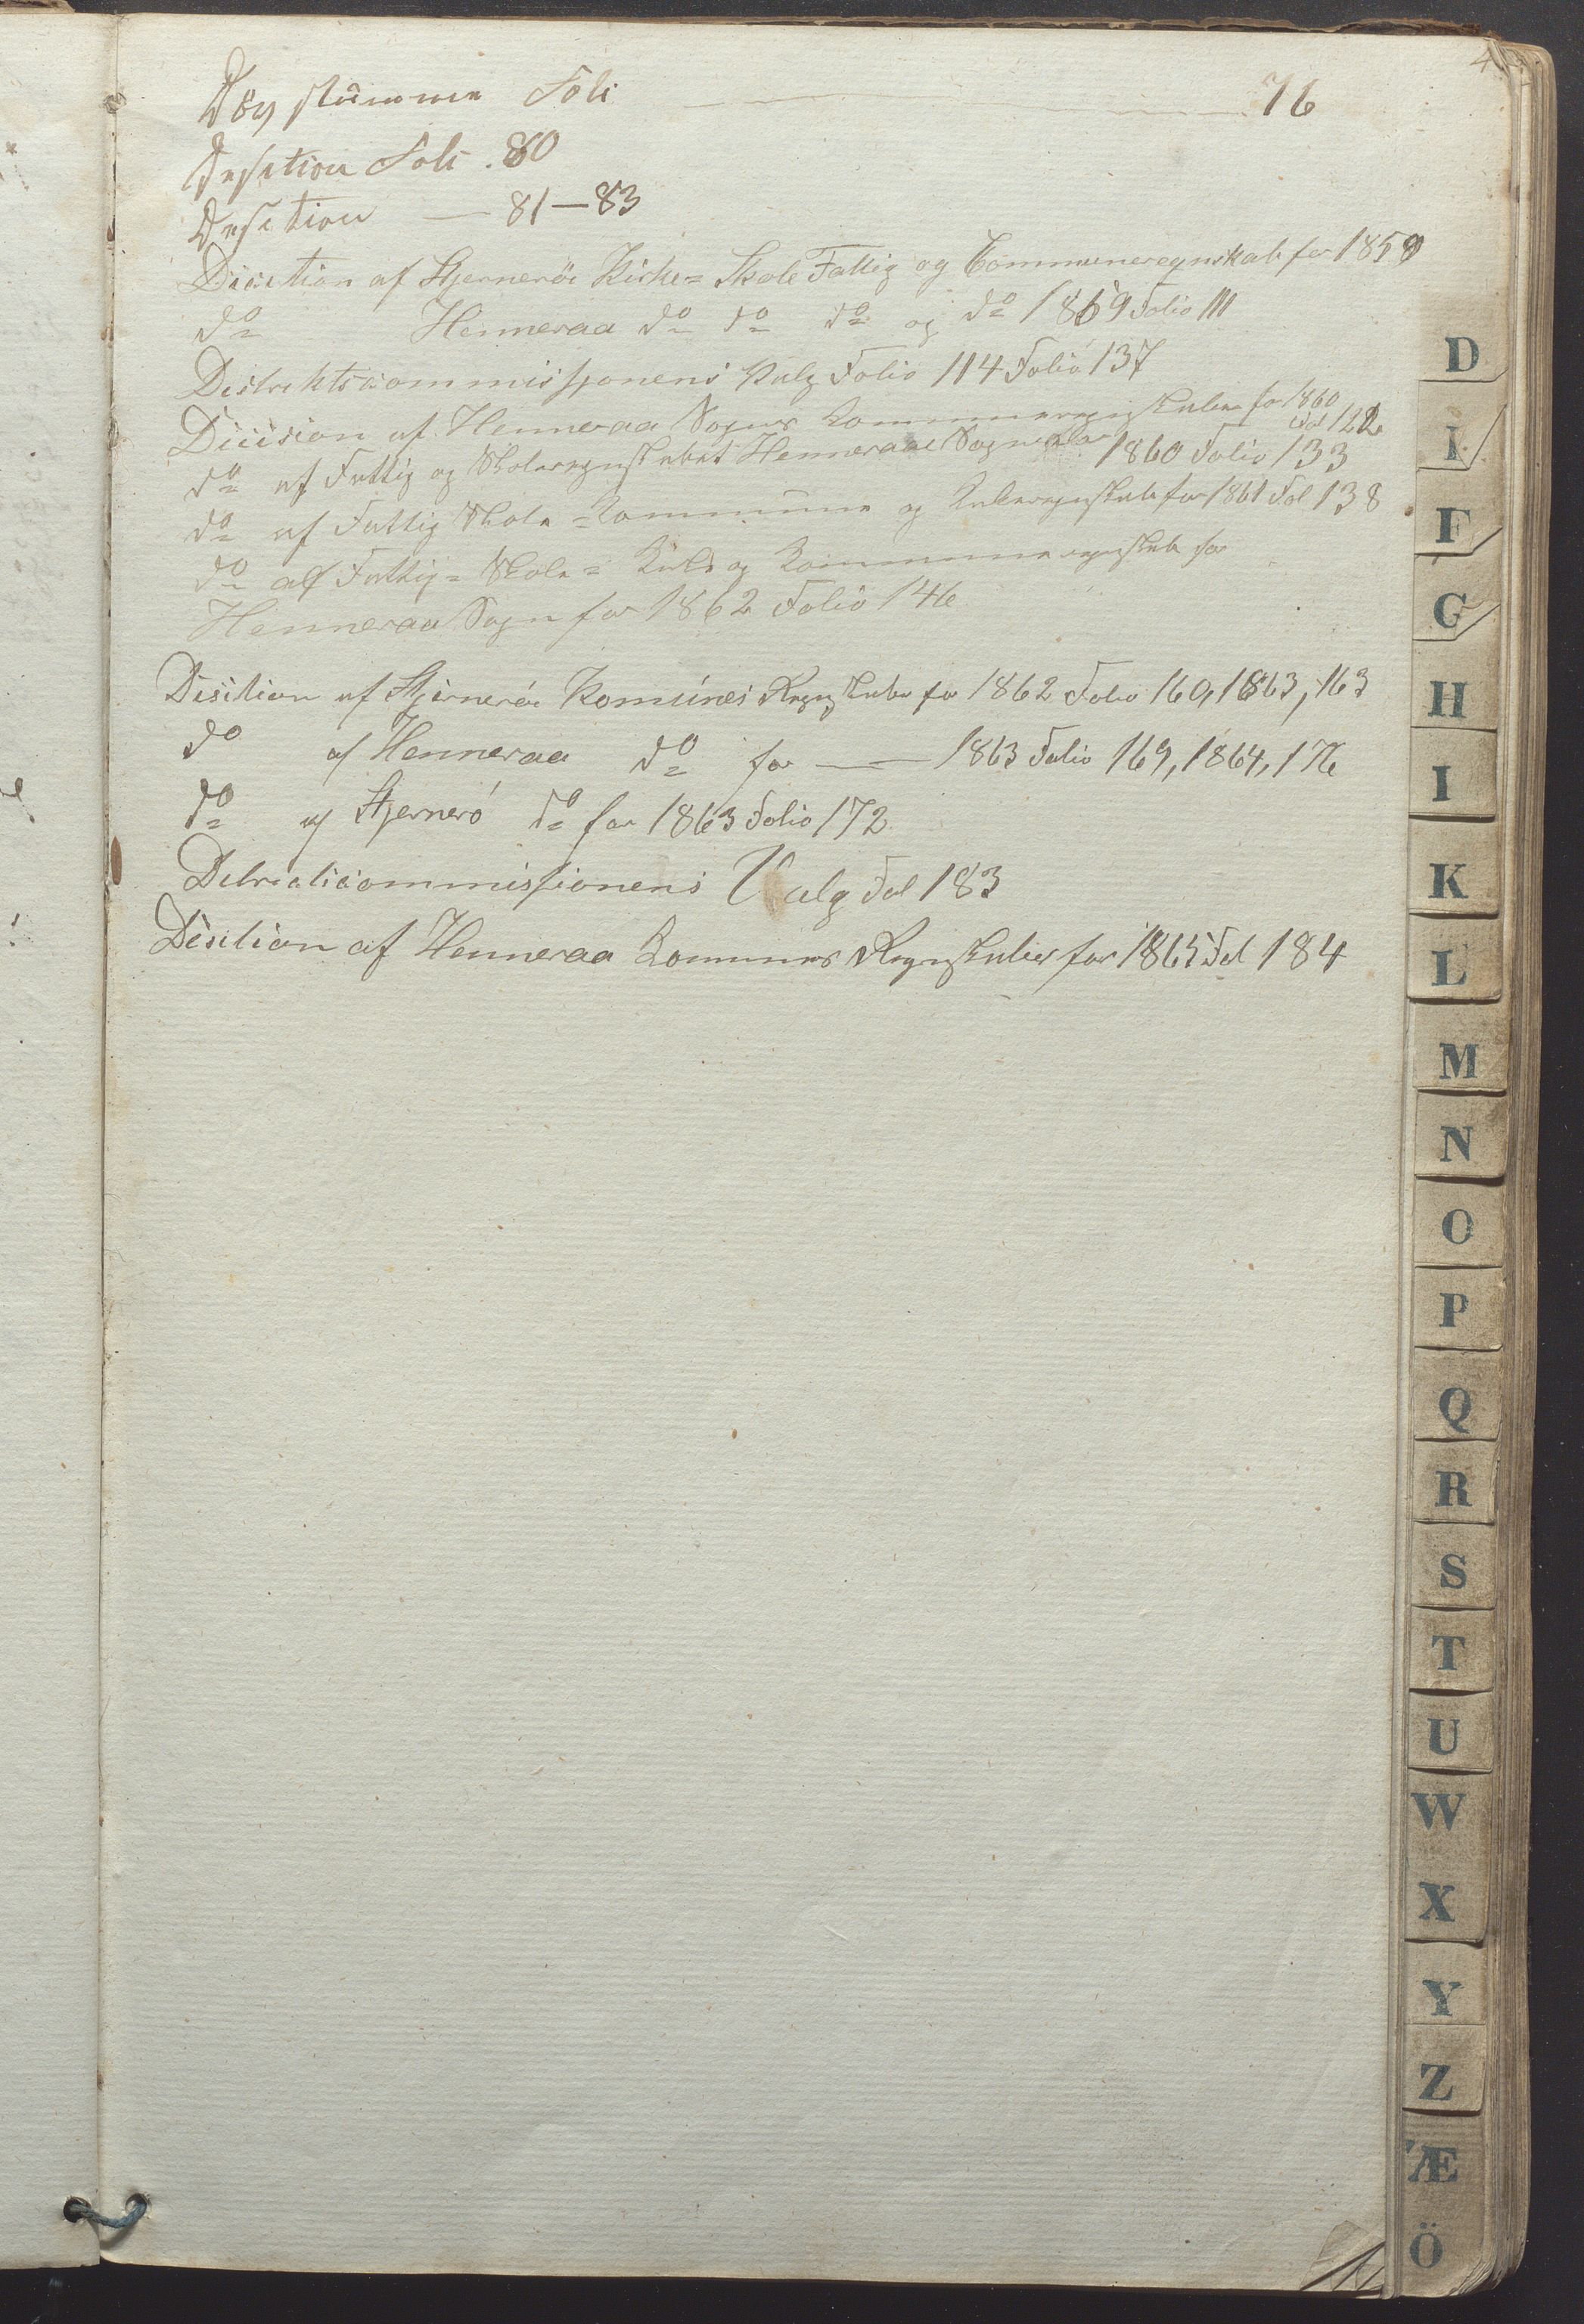 4
Døvstumme Foli 76
Desition Foli. 80
Desition — 81—83
Dicition af Stjernerøe Kirke= Skole Fattig og Commeneregnskab for 1859
do Henneraa do do do og do 1859 Folio 111
Distriktscommissjonens Valg Folio 114 Folio 137
Diicision af Henneraa Sogns Kommuneregnskaber for 1860
Fol 122
do af Fattig og Skoleregnskabet Henneraae Sogn for 1860 Folio 133
do af Fattig Skole =Kommune og Kirkeregnskab for 1861 Fol 138
do af Fattig= Skole= Kirke og Kommune regnskab for
Henneraa Sogn for 1862 Folio 146
Disition af Stjernerøe Komúnes Regnskaber for 1862 Folio 160, 1863, 163
do af Henneraa do for — 1863 Folio 169, 1864, 176
do af Stjernerö do for 1863 Folio 172
Detrictscommissionens Valg Fol 183
Desition af Henneraa Kommunes Regnskaber for 1865 Fol 184
D
F
G
H
I
K
L
M
N
O
P
Q
R
S
T
U
W
X
Y
Z
Æ
Ö